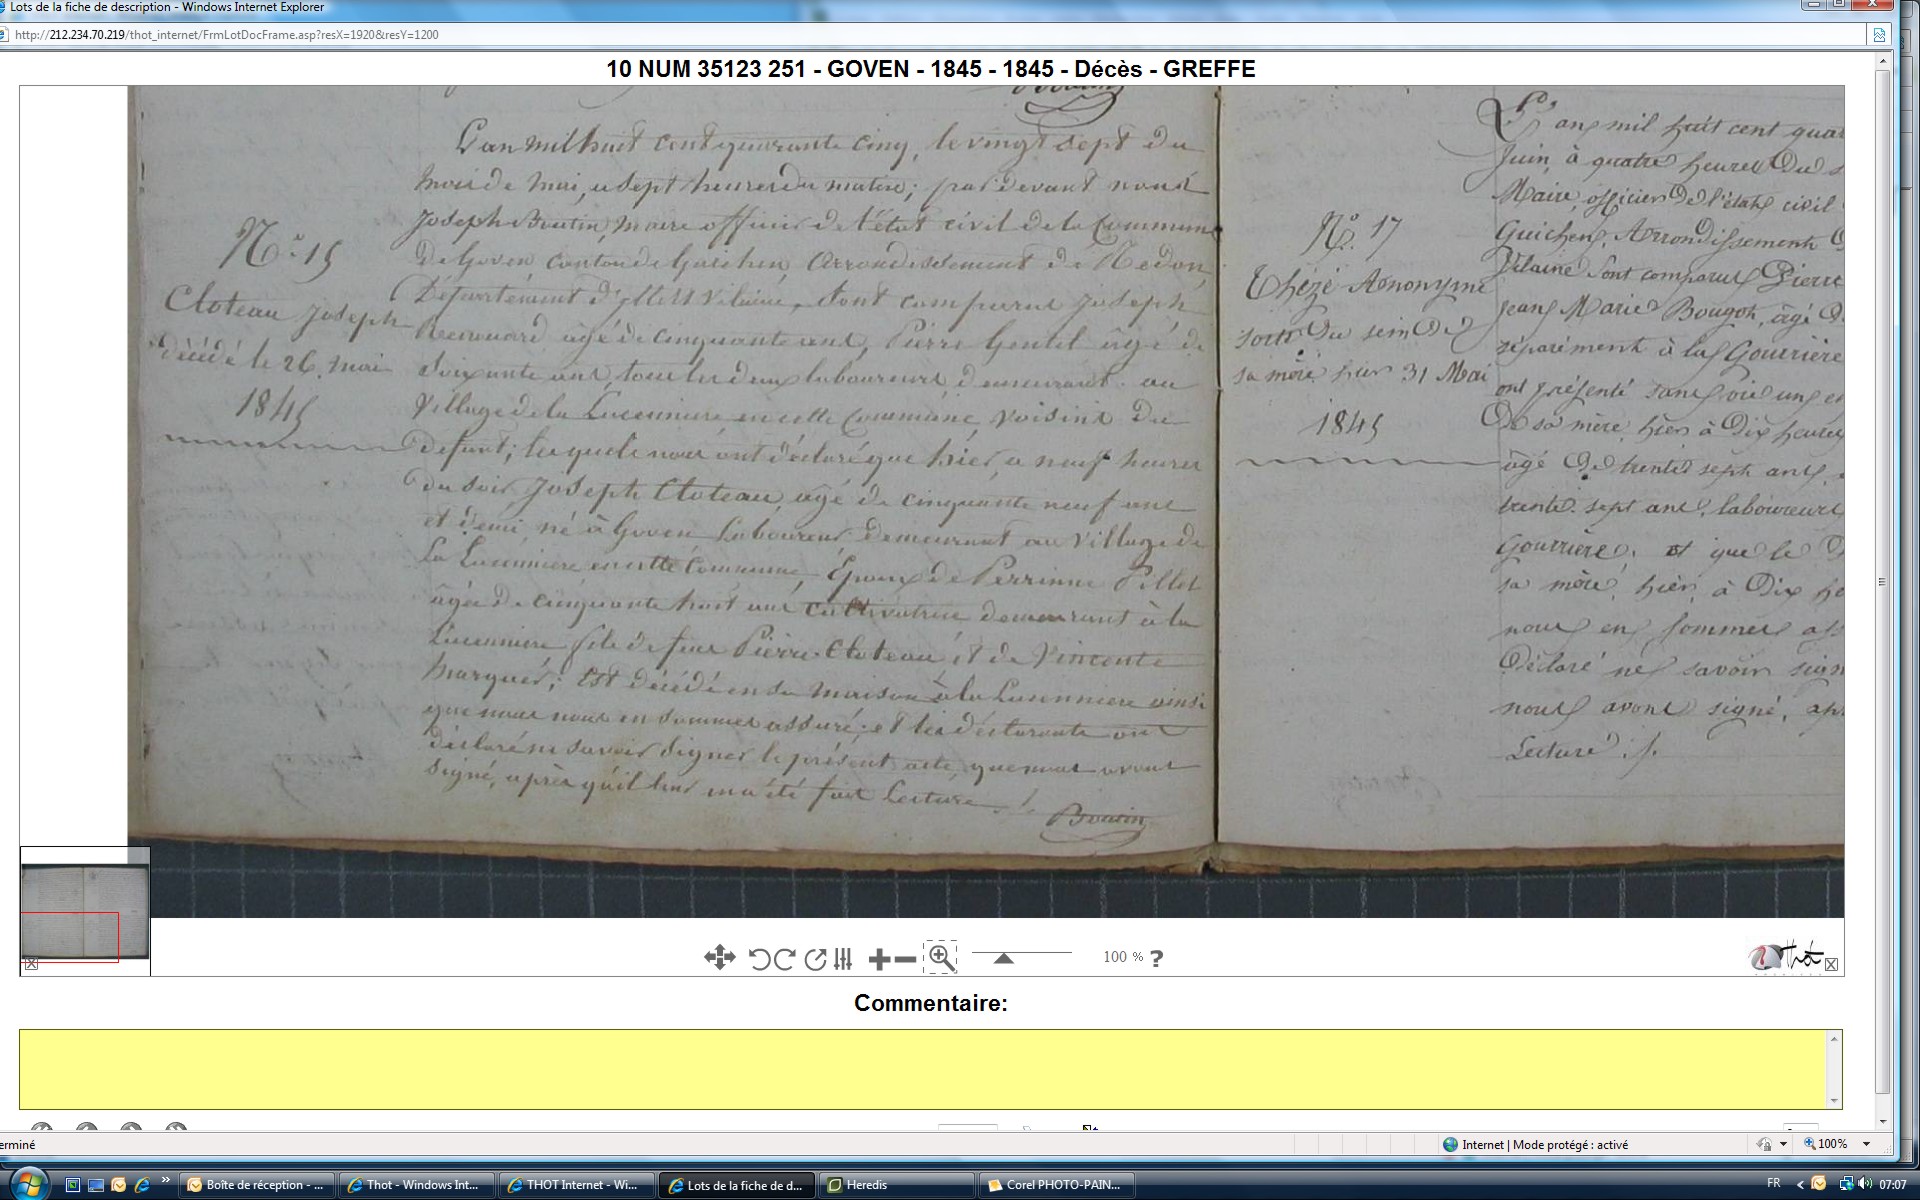 Lots de la fiche de description - Windows Internet Explorer
http://212.234.70.219/thot_internet/FrmLotDocFrame.asp?resX=1920&resY=1200
10 NUM 35123 251 - GOVEN - 1845 - 1845 - Décès - GREFFE
N° 15
Cloteau Joseph
décédé le 26 mai
1845
L'an mil huit cent quarante cinq, le vingt sept du
mois de mai, a sept heures du matin; par devant nous
Joseph Boutin, maire officier de l'état civil de la Commune
de Goven canton de Guichen, Arrondissement de Redon,
Département d'Ille et Vilaine, sont comparus Joseph
âgé de cinquante ans, Pierre Gentil âgé de
soixante ans, tous les deux laboureurs demeurant au
Village de la en cette Commune, voisins du
defunt; lesquels nous ont déclaré que hier, a neuf heures
du soir, Joseph Cloteau, âgé de cinquante neuf ans
et demi, né à Goven Laboureur demeurant au village de
La en cette Commune, Epoux de Perrinne Pellet
âgée de cinquante huit ans cultivatrice demeurant à la
fils de feu Pierre Cloteau et de Vincente
Marquer; est décédé en sa maison à la ainsi
que nous nous en sommes assuré; et les déclarants ont
déclaré ne savoir signer le présent acte, que nous avons
signé, après qu'il leur en a été fait Lecture ./.
Boutin
N° 17
Thézé Anonyme
sorti du sein de
sa mère hier 31 Mai
1845
L'an mil huit cent quar
Juin, à quatre heures du s
Maire, officier de l'état civil
Guichen, Arrondissement d
Vilaine sont comparus Pierre
Jean Marie Bougot, âgé d
séparément à la Gourrière
ont présenté sans vie un en
de sa mère, hier à dix heures
âgé de trente sept ans,
trente sept ans, laboureurs
Gourrière, et que le d
sa mère, hier, à dix he
nous en sommes as
déclaré ne savoir sign
nous avons signé, ap
Lecture ./.
100 % ?
Thot
Commentaire:
erminé
Internet | Mode protégé : activé
100%
Boîte de réception - ...
Thot - Windows Int...
THOT Internet - Wi...
Lots de la fiche de d...
Heredis
Corel PHOTO-PAIN...
FR
07:07